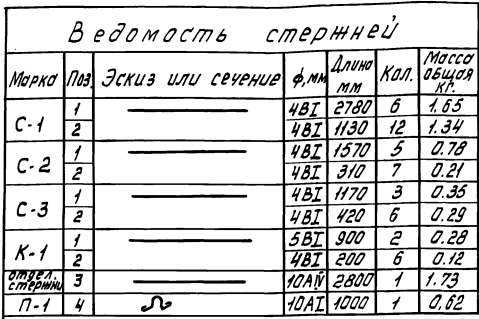 Ведомость стержней
Марка Поз. Эскиз или сечение ф,мм Длина мм Кол. Масса общая кг.
С-1 1 4ВI 2780 6 1.65
2 4ВI 1130 12 1.34
С-2 1 4ВI 1570 5 0.78
2 4ВI 310 7 0.21
С-3 1 4ВI 1170 3 0.35
2 4ВI 420 6 0.29
К-1 1 5ВI 900 2 0.28
2 4ВI 200 6 0.12
отдел. стержни 3 10АIV 2800 1 1.73
П-1 4 10АI 1000 1 0,62